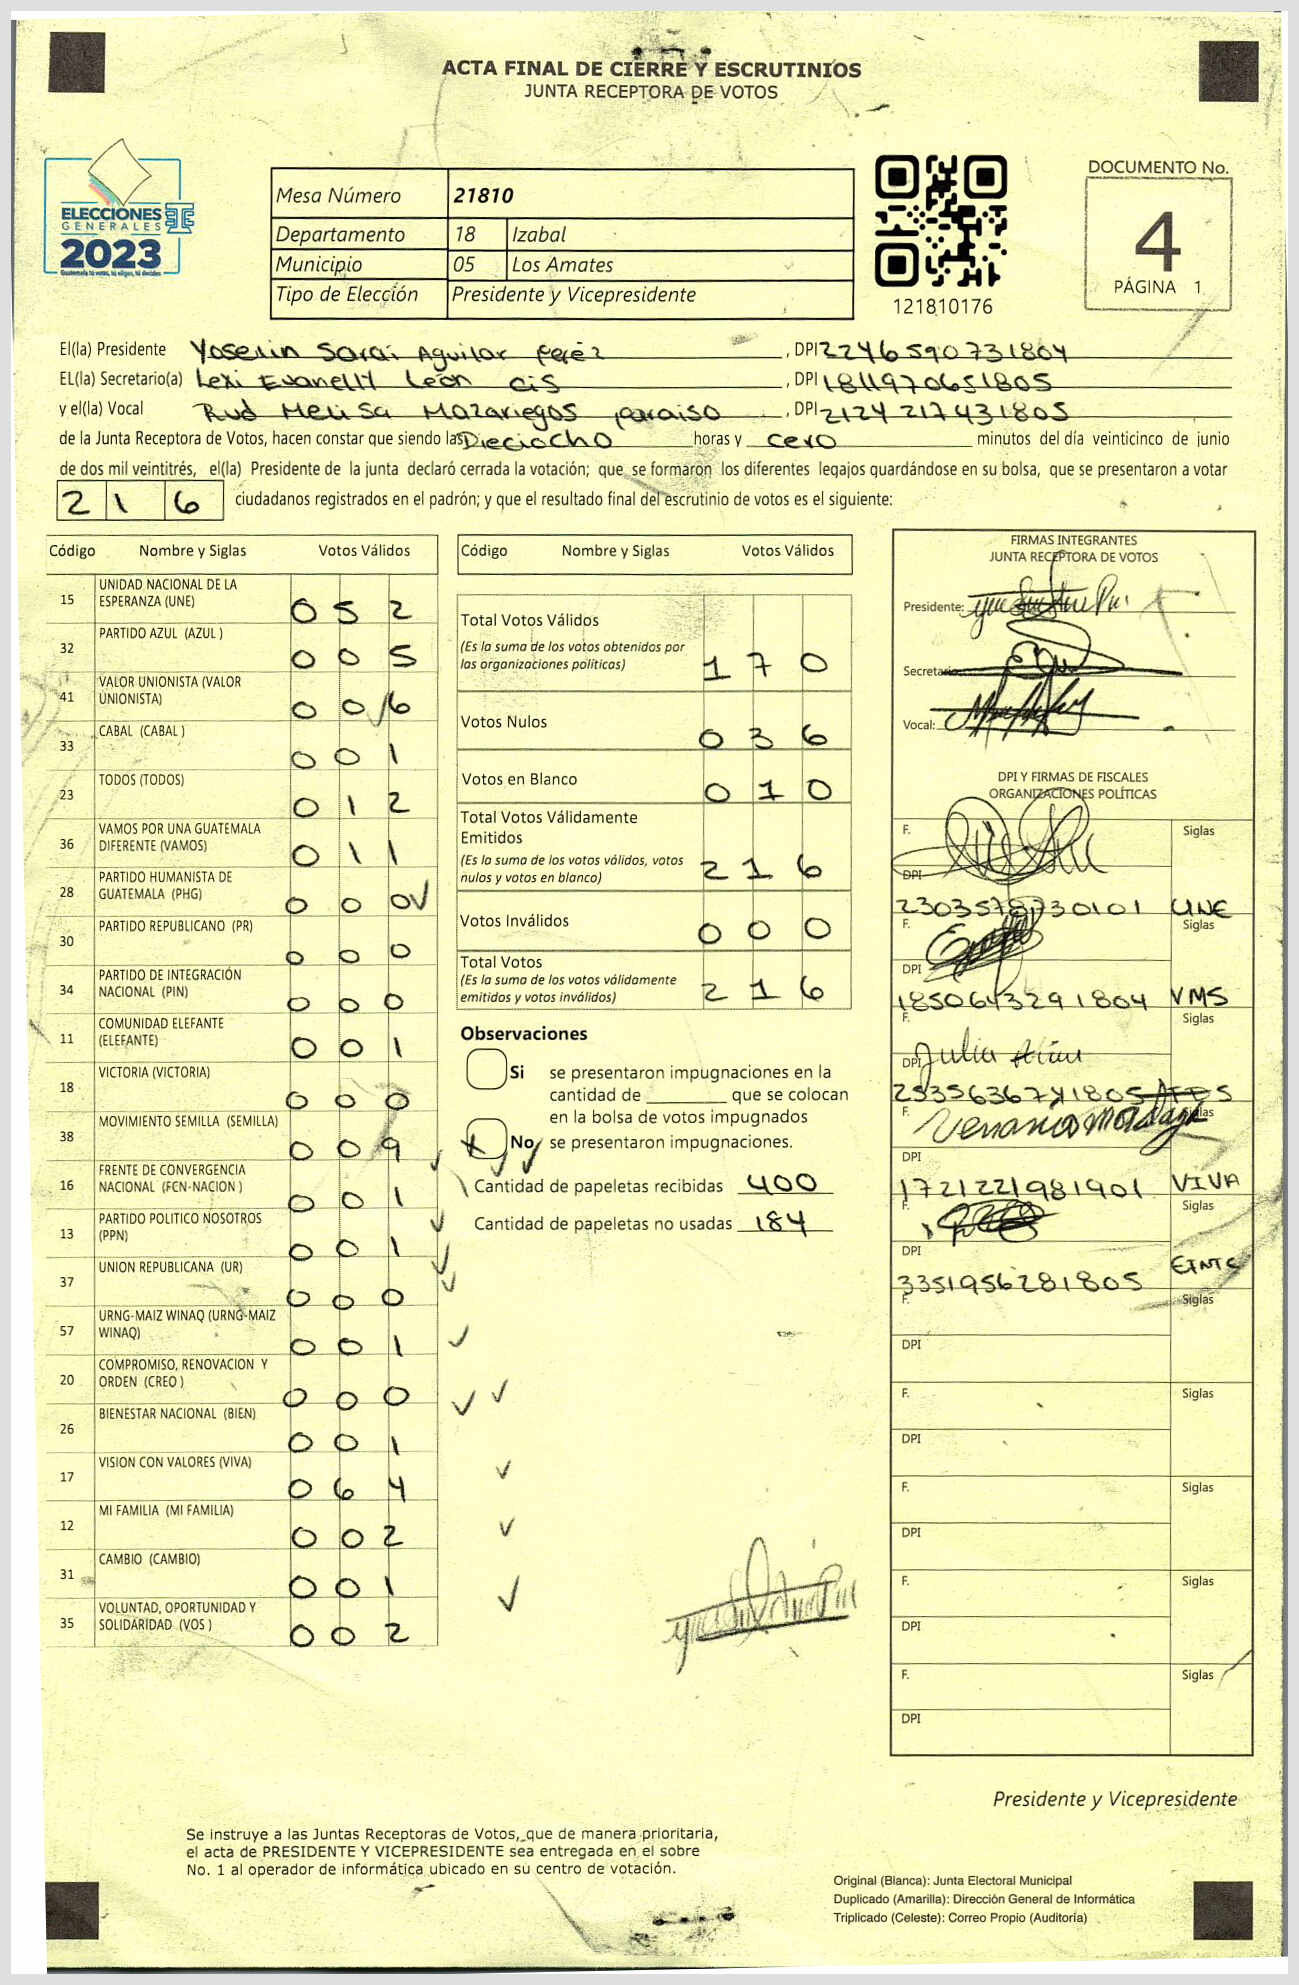 ACTA FINAL DE CIERRE Y ESCRUTINIOS
JUNTA RECEPTORA DE VOTOS
ELECCIONES
GENERALES
2023
Guatemala tú votas, tú eliges, tú decides
Mesa Número 21810
Departamento 18 Izabal
Municipio 05 Los Amates
Tipo de Elección Presidente y Vicepresidente
121810176
DOCUMENTO No.
4
PÁGINA 1
El(la) Presidente Yoselin Sarai Aguilar Peréz, DPI 2246590731804
EL(la) Secretario(a) Lexi Evanelly León, DPI 1811970651805
y el(la) Vocal Rud Melisa Mazariegos paraiso, DPI 2124217431805
de la Junta Receptora de Votos, hacen constar que siendo las Dieciocho horas y cero minutos del día veinticinco de junio
de dos mil veintitrés, el(la) Presidente de la junta declaró cerrada la votación; que se formaron los diferentes legajos quardándose en su bolsa, que se presentaron a votar
216 ciudadanos registrados en el padrón; y que el resultado final del escrutinio de votos es el siguiente:
Código Nombre y Siglas Votos Válidos
15 UNIDAD NACIONAL DE LA ESPERANZA (UNE) 052
32 PARTIDO AZUL (AZUL ) 005
41 VALOR UNIONISTA (VALOR UNIONISTA) 006
33 CABAL (CABAL ) 001
23 TODOS (TODOS) 012
36 VAMOS POR UNA GUATEMALA DIFERENTE (VAMOS) 011
28 PARTIDO HUMANISTA DE GUATEMALA (PHG) 000
30 PARTIDO REPUBLICANO (PR) 000
34 PARTIDO DE INTEGRACIÓN NACIONAL (PIN) 000
11 COMUNIDAD ELEFANTE (ELEFANTE) 001
18 VICTORIA (VICTORIA) 000
38 MOVIMIENTO SEMILLA (SEMILLA) 009
16 FRENTE DE CONVERGENCIA NACIONAL (FCN-NACION ) 001
13 PARTIDO POLITICO NOSOTROS (PPN) 001
37 UNION REPUBLICANA (UR) 000
57 URNG-MAIZ WINAQ (URNG-MAIZ WINAQ) 001
20 COMPROMISO, RENOVACION Y ORDEN (CREO ) 000
26 BIENESTAR NACIONAL (BIEN) 001
17 VISION CON VALORES (VIVA) 064
12 MI FAMILIA (MI FAMILIA) 002
31 CAMBIO (CAMBIO) 001
35 VOLUNTAD, OPORTUNIDAD Y SOLIDARIDAD (VOS ) 002
Código Nombre y Siglas Votos Válidos
Total Votos Válidos
(Es la suma de los votos obtenidos por
las organizaciones políticas) 170
Votos Nulos 036
Votos en Blanco 010
Total Votos Válidamente
Emitidos
(Es la suma de los votos válidos, votos
nulos y votos en blanco) 216
Votos Inválidos 000
Total Votos
(Es la suma de los votos válidamente
emitidos y votos inválidos) 216
Observaciones
Si se presentaron impugnaciones en la
cantidad de ________ que se colocan
en la bolsa de votos impugnados
x No se presentaron impugnaciones.
Cantidad de papeletas recibidas 400
Cantidad de papeletas no usadas 184
FIRMAS INTEGRANTES
JUNTA RECEPTORA DE VOTOS
Presidente:
Secretario:
Vocal:
DPI Y FIRMAS DE FISCALES
ORGANIZACIONES POLÍTICAS
F. Siglas
DPI
2303578730101 UNE
F. Siglas
DPI
1850643291804 VMS
F. Siglas
DPI Julia
F. Siglas
DPI
1721221981901 VIVA
F. Siglas
DPI
3351956281805
F. Siglas
DPI
F. Siglas
DPI
F. Siglas
DPI
F. Siglas
DPI
F. Siglas
DPI
Presidente y Vicepresidente
Se instruye a las Juntas Receptoras de Votos, que de manera prioritaria,
el acta de PRESIDENTE Y VICEPRESIDENTE sea entregada en el sobre
No. 1 al operador de informática ubicado en su centro de votación.
Original (Blanca): Junta Electoral Municipal
Duplicado (Amarilla): Dirección General de Informática
Triplicado (Celeste): Correo Propio (Auditoría)